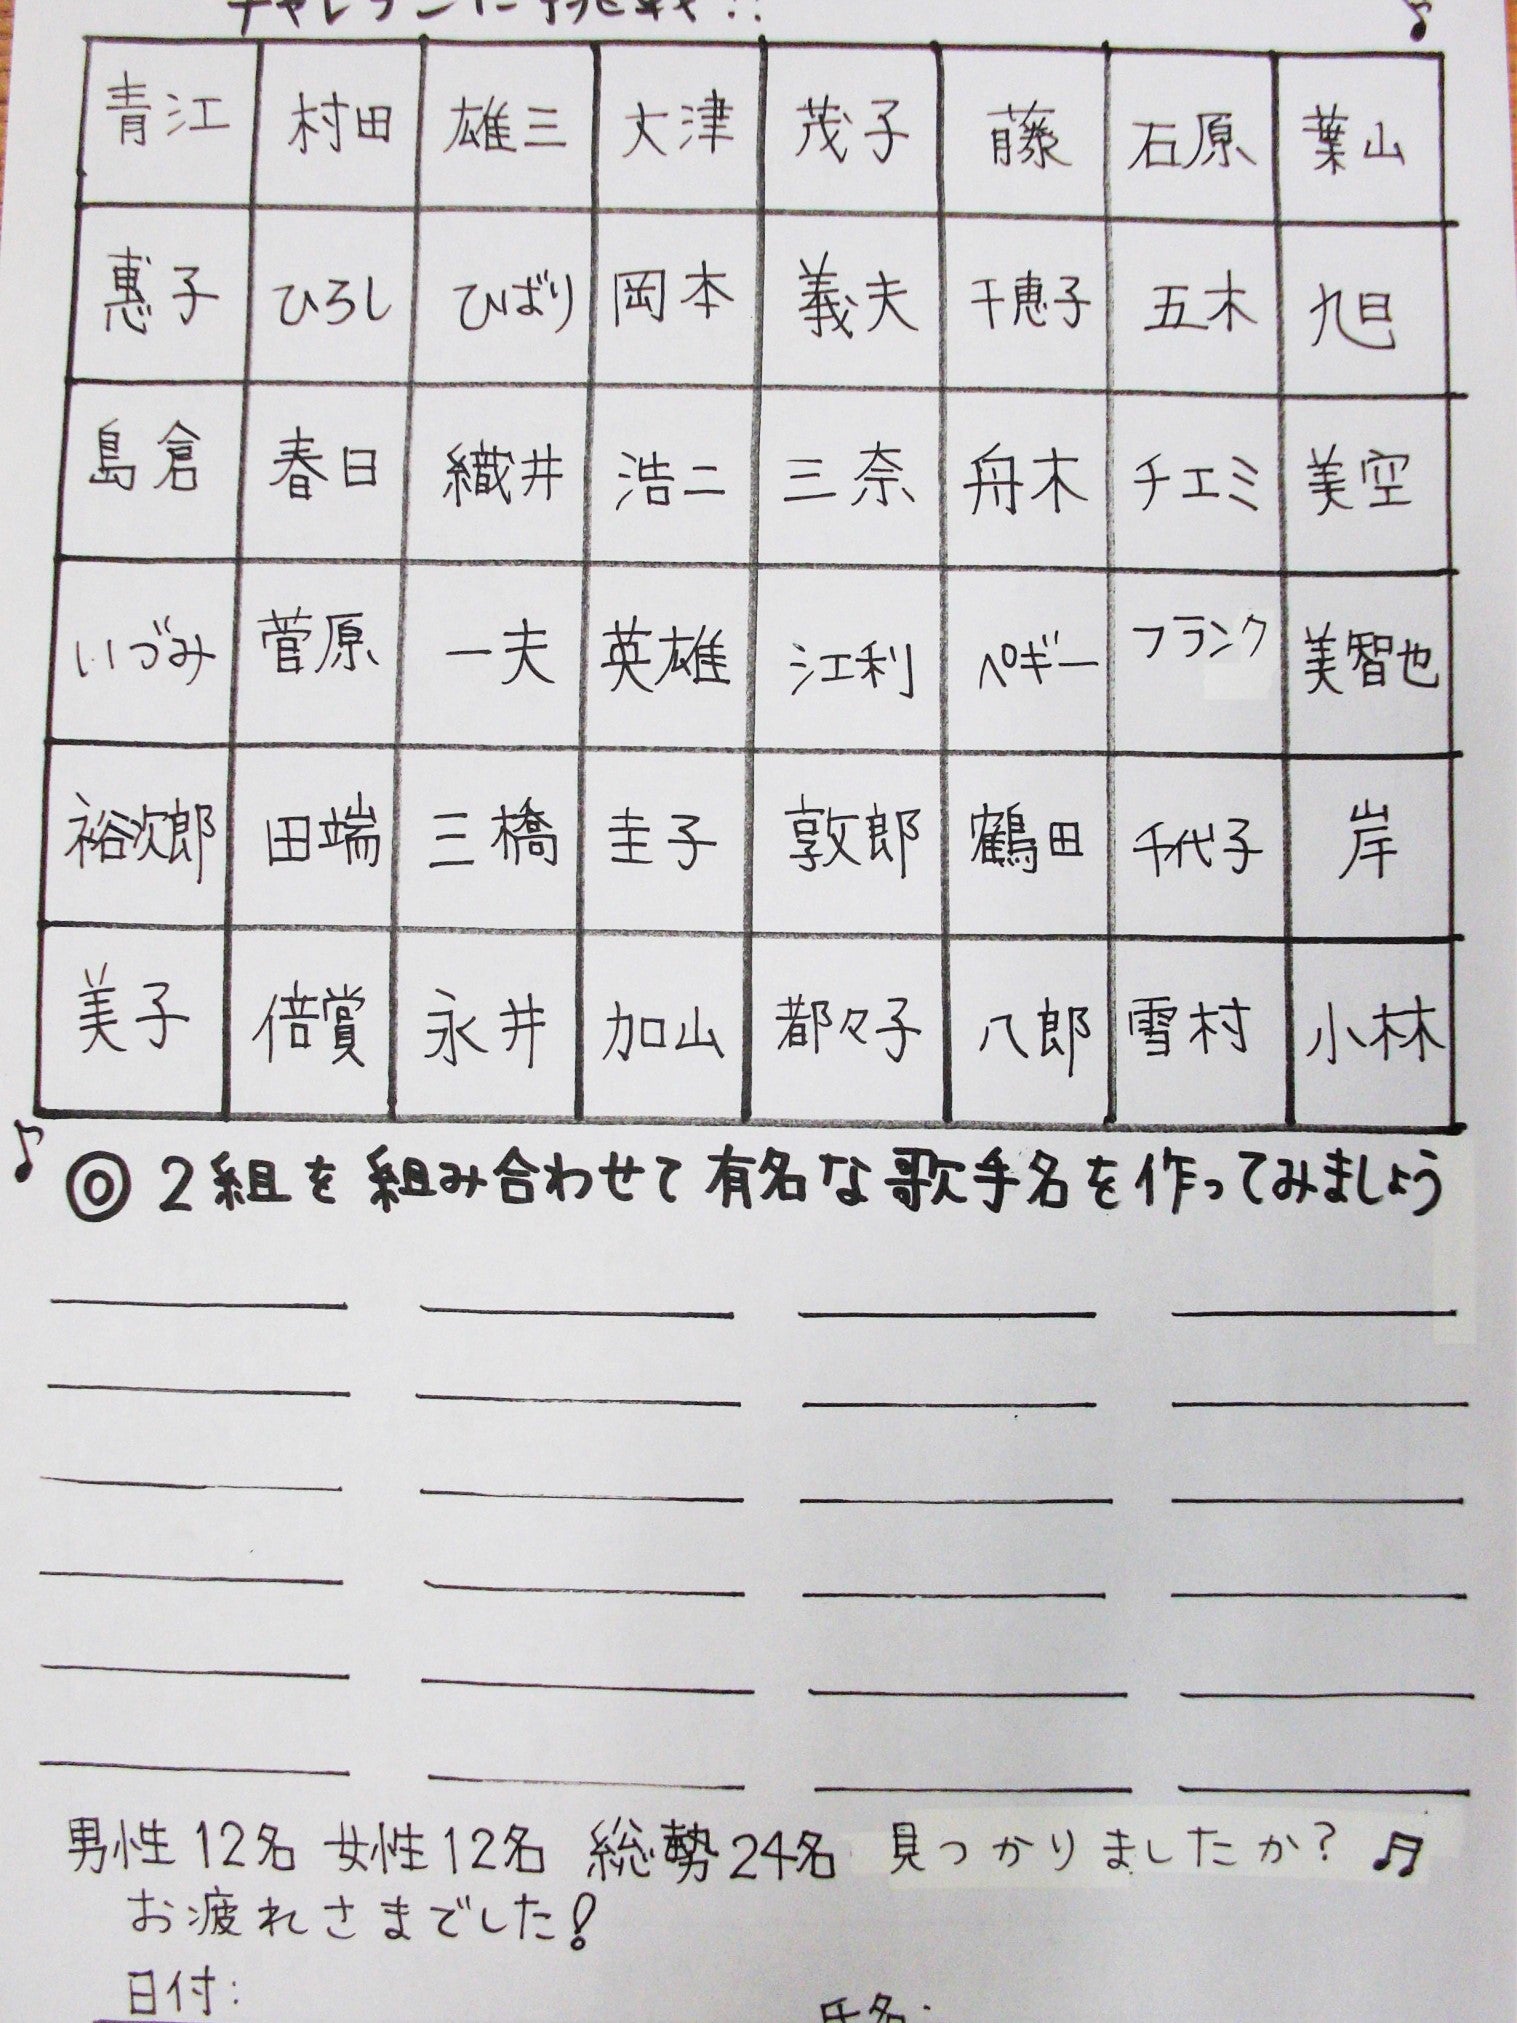 チャレランに挑戦!!
青江 村田 雄三 大津 茂子 藤 石原 葉山
惠子 ひろし ひばり 岡本 義夫 千恵子 五木 旭
島倉 春日 織井 浩二 三奈 舟木 チエミ 美空
いづみ 菅原 一夫 英雄 江利 ペギー フランク 美智也
裕次郎 田端 三橋 圭子 敦郎 鶴田 千代子 岸
美子 倍賞 永井 加山 都々子 八郎 雪村 小林
◎2組を組み合わせて有名な歌手名を作ってみましょう
男性12名 女性12名 総勢24名 見つかりましたか?
お疲れさまでした!
日付:
氏名: